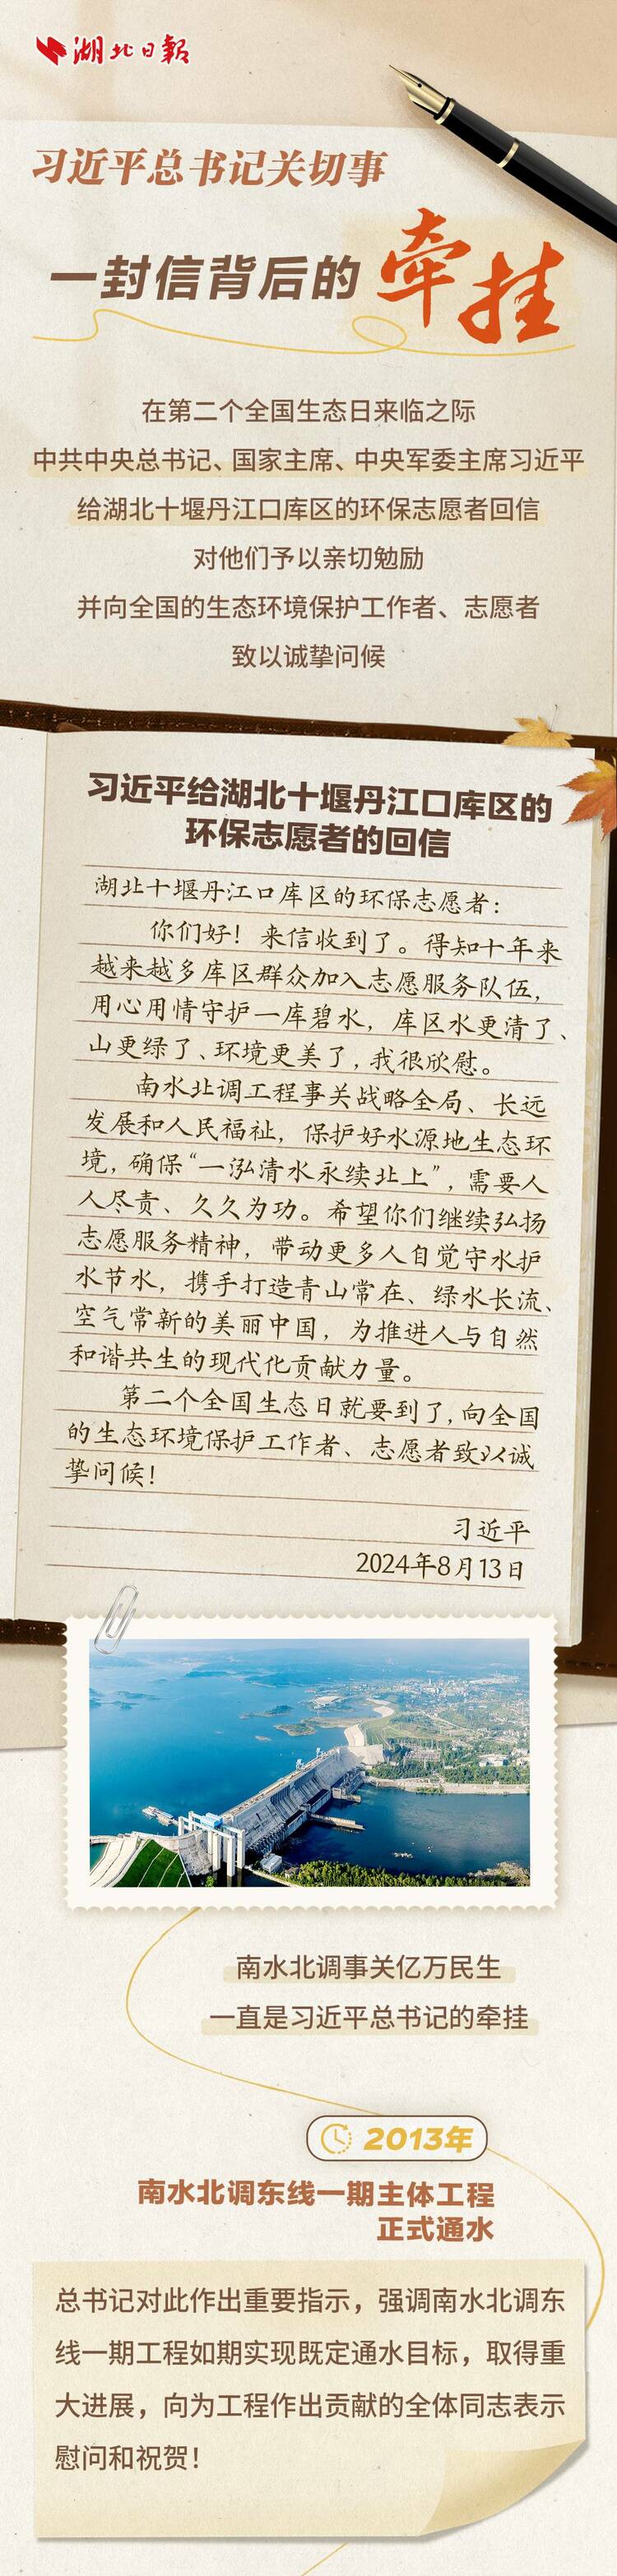 湖北日報
习近平总书记关切事
一封信背后的牵挂
在第二个全国生态日来临之际
中共中央总书记、国家主席、中央军委主席习近平
给湖北十堰丹江口库区的环保志愿者回信
对他们予以亲切勉励
并向全国的生态环境保护工作者、志愿者
致以诚挚问候
习近平给湖北十堰丹江口库区的
环保志愿者的回信
湖北十堰丹江口库区的环保志愿者：
你们好！来信收到了。得知十年来
越来越多库区群众加入志愿服务队伍，
用心用情守护一库碧水，库区水更清了、
山更绿了、环境更美了，我很欣慰。
南水北调工程事关战略全局、长远
发展和人民福祉，保护好水源地生态环
境，确保“一泓清水永续北上”，需要人
人尽责、久久为功。希望你们继续弘扬
志愿服务精神，带动更多人自觉守水护
水节水，携手打造青山常在、绿水长流、
空气常新的美丽中国，为推进人与自然
和谐共生的现代化贡献力量。
第二个全国生态日就要到了，向全国
的生态环境保护工作者、志愿者致以诚
挚问候！
习近平
2024年8月13日
南水北调事关亿万民生
一直是习近平总书记的牵挂
2013年
南水北调东线一期主体工程
正式通水
总书记对此作出重要指示，强调南水北调东
线一期工程如期实现既定通水目标，取得重
大进展，向为工程作出贡献的全体同志表示
慰问和祝贺！